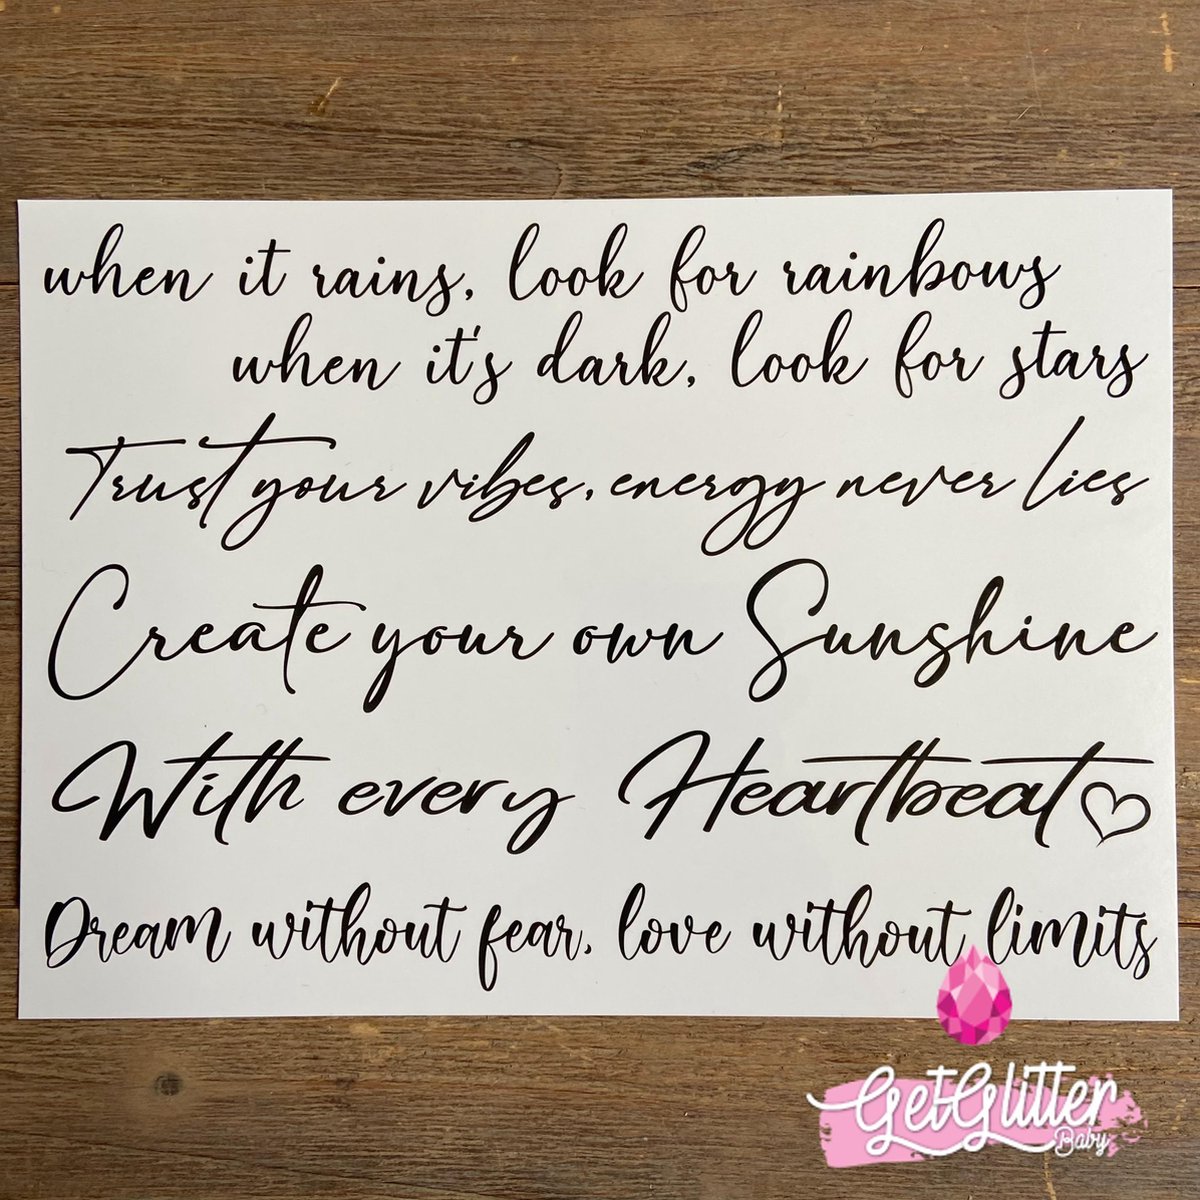 when it rains, look for rainbows
when it's dark, look for stars
Trust your vibes, energy never lies
Create your own Sunshine
With every Heartbeat
Dream without fear, love without limits
GetGlitter
Baby